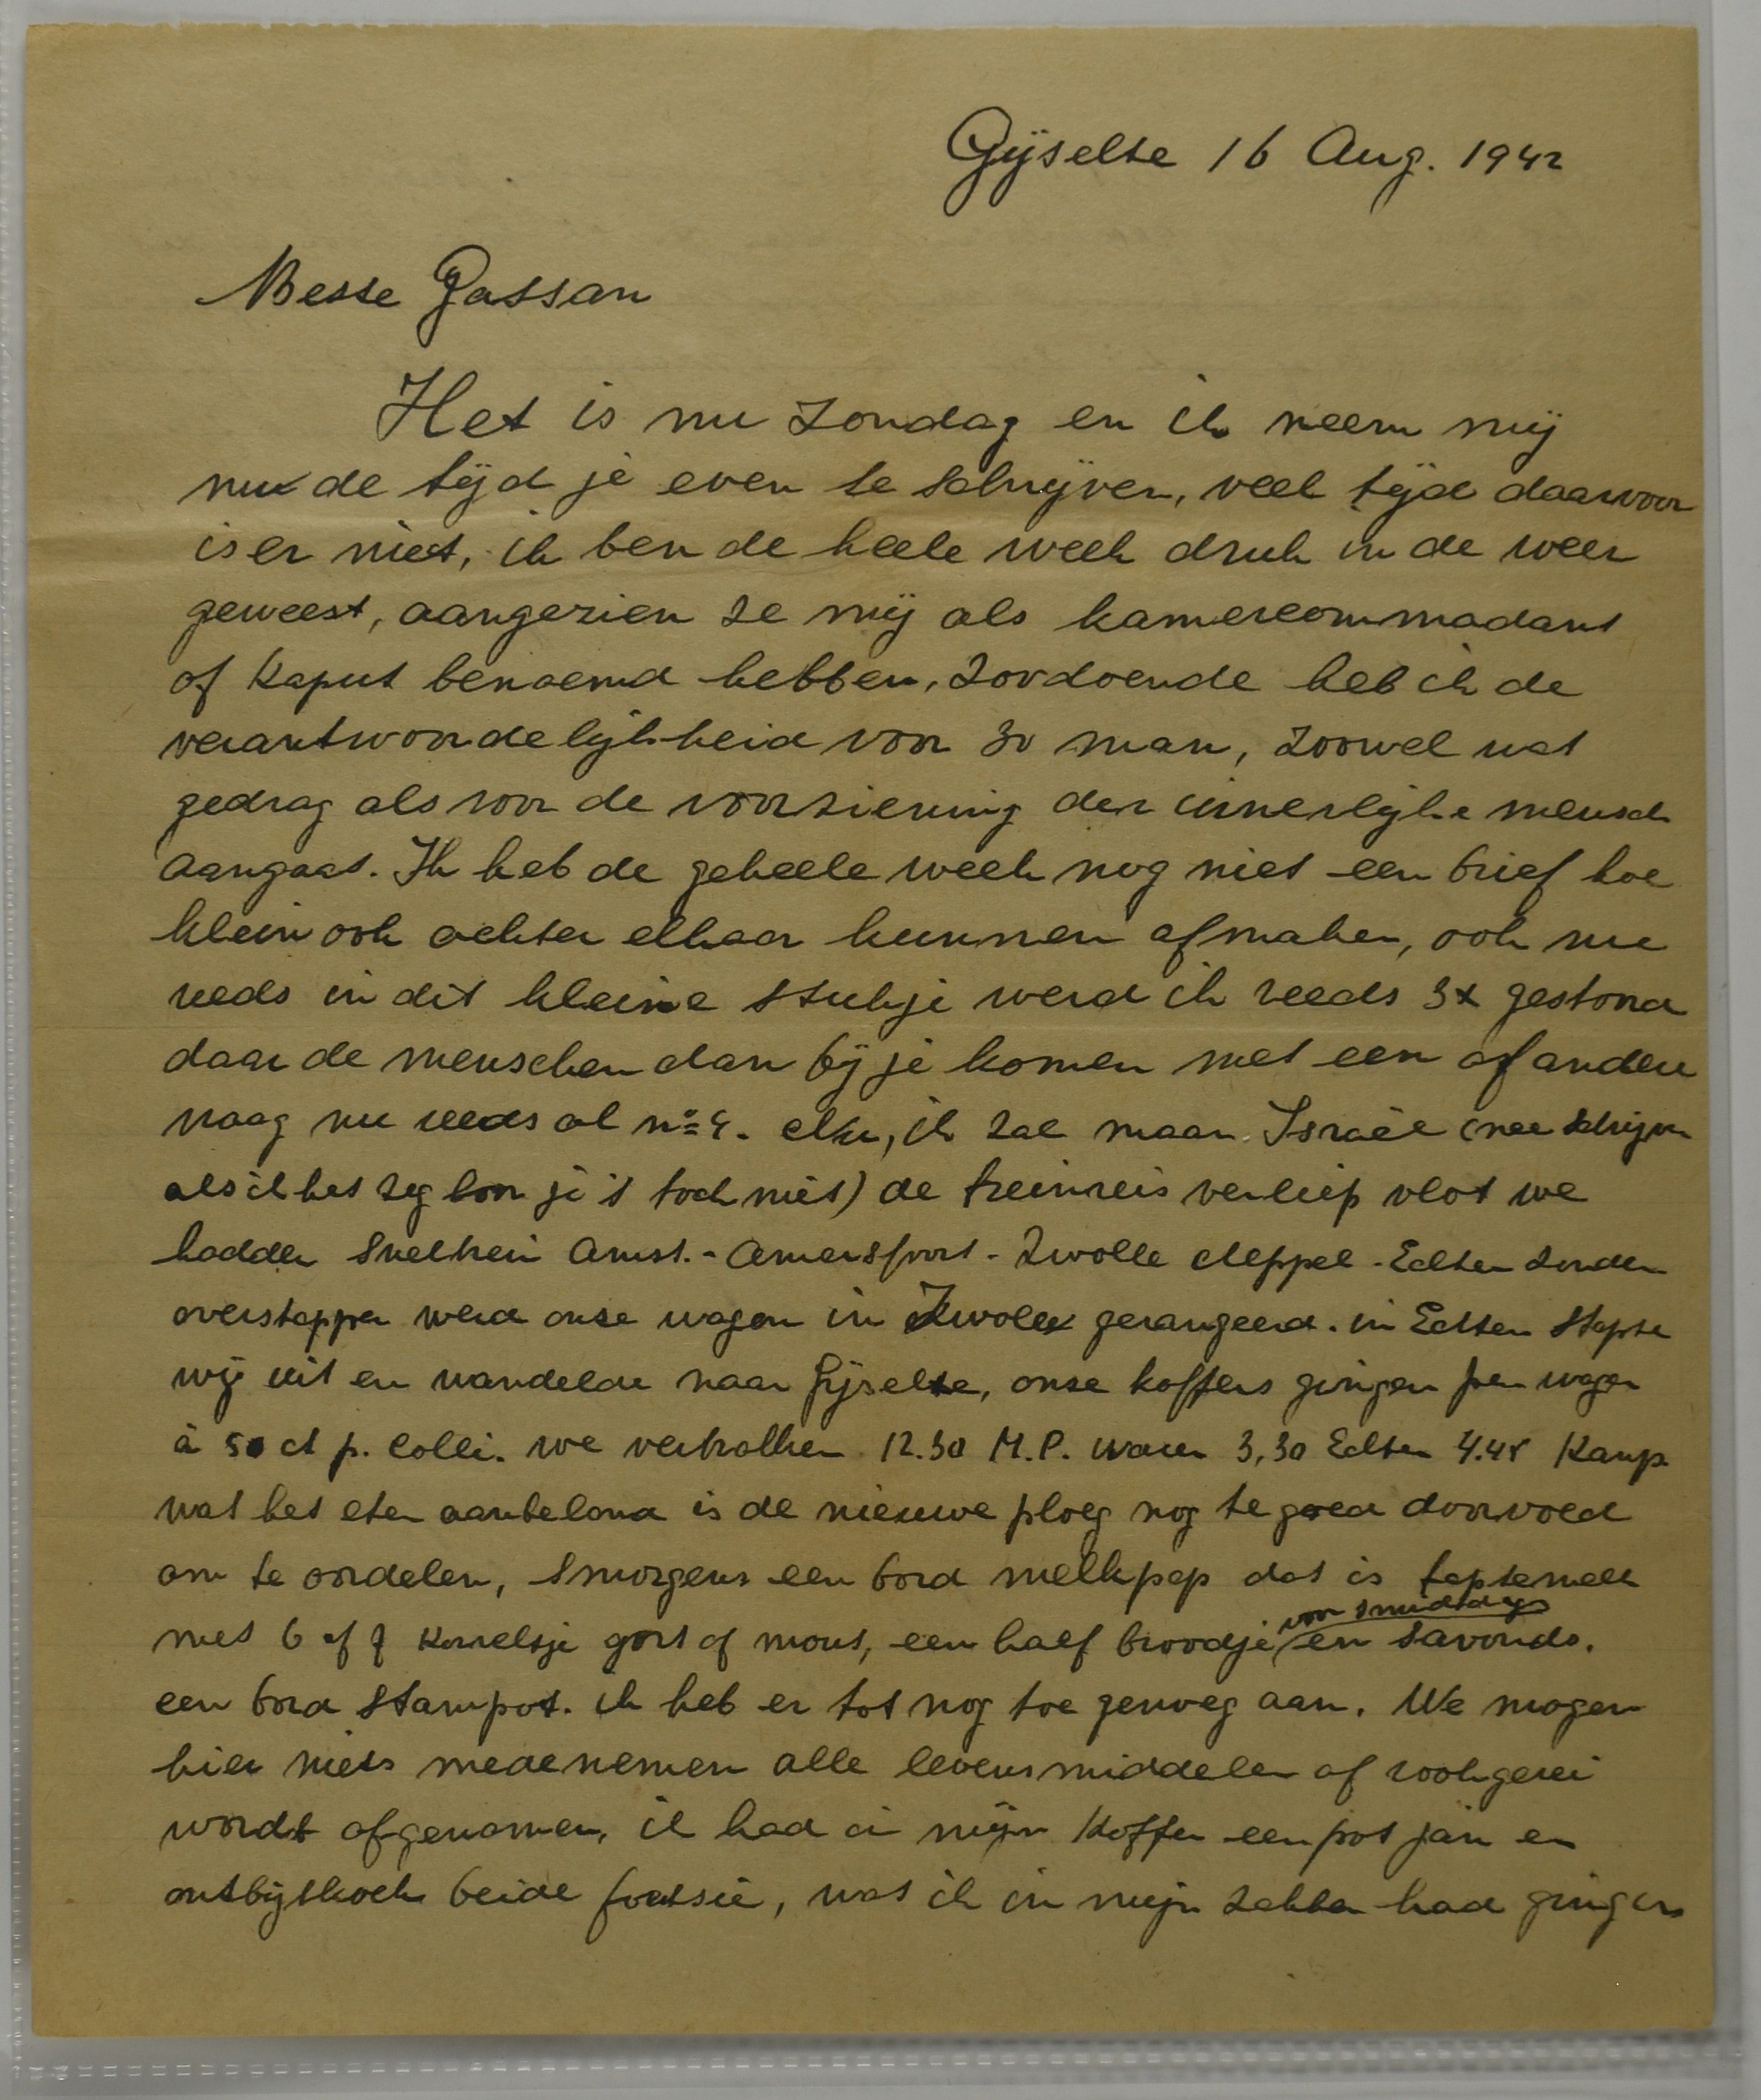 Gijselte 16 Aug. 1942
Beste Gassan
Het is nu Zondag en ik neem mij
nu de tijd je even te schrijven, veel tijd daarvoor
is er niet, ik ben de heele week druk in de weer
geweest, aangezien ze mij als kamercommadant
of Kaput benoemd hebben, zoodoende heb ik de
verantwoordelijkheid voor 30 man, zoowel wat
gedrag als voor de voorziening der innerlijke mensch
aangaat. Ik heb de geheele week nog niet een brief hoe
klein ook achter elkaar kunnen afmaken, ook nu
reeds in dit kleine stukje werd ik reeds 3x gestoord
daar de menschen dan bij je komen met een of andere
vraag nu reeds al no 4. enz, ik zal maar Israël (nee schrijven
als ik het zeg hoor je 't toch niet) de treinreis verliep vlot we
hadden sneltrein Amst. - Amersfoort - Zwolle Meppel - Echten zonder
overstappen werd onze wagon in Zwolle gerangeerd. in Echten stapte
wij uit en wandelde naar Gijselte, onze koffers gingen per wagen
à 50 ct p. colli. we vertrokken 12.30 M.P. waren 3,30 Echten 4.45 Kamp
wat het eten aanbelond is de nieuwe ploeg nog te goed doorvoed
om te oordelen, smorgens een bord melkpap dat is taptemelk
met 6 of 7 korreltje gort of mout, een half broodje voor smiddags en savonds.
een bord stampot. ik heb er tot nog toe genoeg aan. We mogen
hier niets medenemen alle levensmiddelen of rookgerei
wordt afgenomen, ik had in mijn koffer een pot jam en
ontbijtkoek beide foetsie, wat ik in mijn zakken had gingen